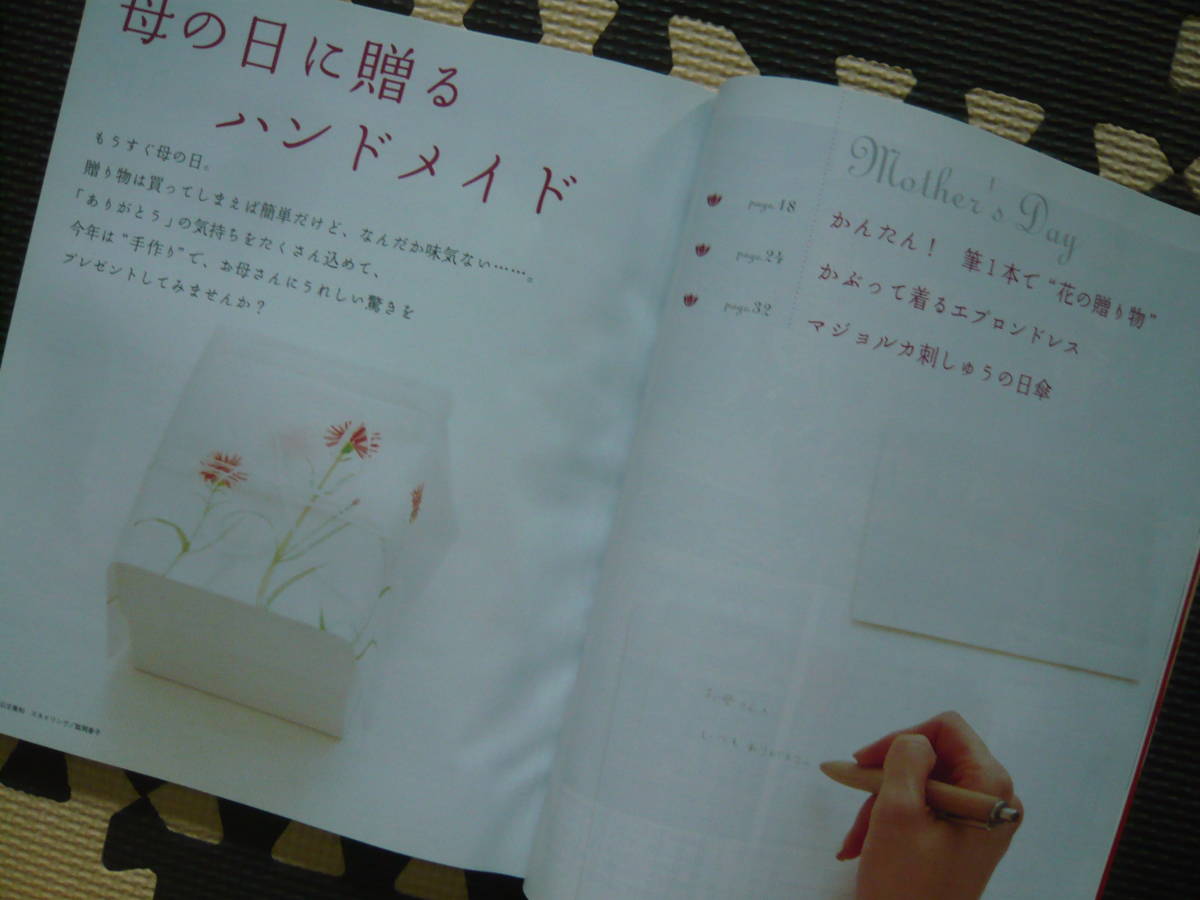 母の日に贈る
ハンドメイド
もうすぐ母の日。
贈り物は買ってしまえば簡単だけど、なんだか味気ない……。
「ありがとう」の気持ちをたくさん込めて、
今年は“手作り”で、お母さんにうれしい驚きを
プレゼントしてみませんか?
Mother's Day
page.18 かんたん! 筆1本で“花の贈り物”
page.24 かぶって着るエプロンドレス
page.32 マジョルカ刺しゅうの日傘
お母さんへ
いつもありがとう